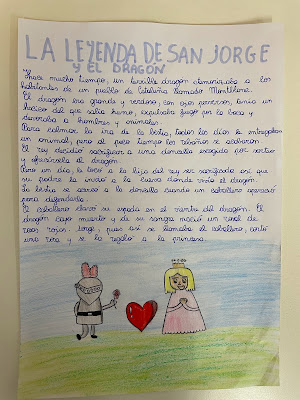 LA LEYENDA DE SAN JORGE
Y EL DRAGÓN
Hace mucho tiempo, un terrible dragón atemorizaba a los
habitantes de un pueblo de Cataluña llamado Montblanc.
El dragón era grande y verdoso, con ojos perversos, tenía un
hocico del que salía humo, expulsaba fuego por la boca y
devoraba a hombres y animales.
Para calmar la ira de la bestia, todos los días le entregaban
un animal, pero al poco tiempo los rebaños se acabaron.
El rey decidió sacrificar a una doncella escogida por sorteo
y ofrecérsela al dragón.
Pero un día, le tocó a la hija del rey ser sacrificada así que
su padre la envió a la cueva donde vivía el dragón.
La bestia se acercó a la doncella cuando un caballero apareció
para defenderla.
El caballero clavó su espada en el vientre del dragón. El
dragón cayó muerto y de su sangre nació un rosal de
rosas rojas. Jorge, pues así se llamaba el caballero, cortó
una rosa y se la regaló a la princesa.